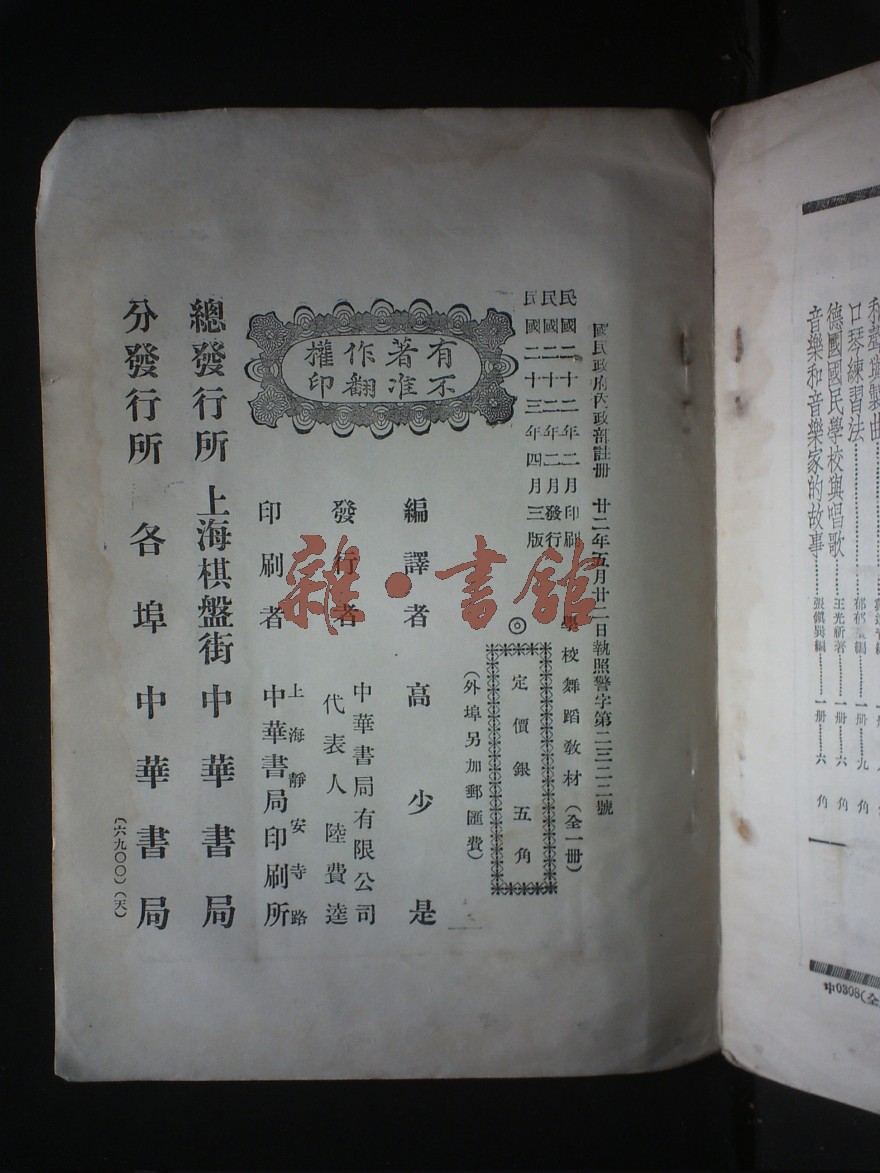 國民政府內政部註冊 廿二年五月廿二日執照警字第二三二二號
民國二十二年二月印刷
民國二十二年二月發行
民國二十三年四月三版
學校舞蹈教材(全一冊)
◎
定價銀五角
(外埠另加郵匯費)
有著作權
不准翻印
編譯者 高少是
發行者 中華書局有限公司
代表人 陸費逵
印刷者 上海靜安寺路
中華書局印刷所
總發行所 上海棋盤街 中華書局
分發行所 各埠 中華書局
(六九〇〇)(天)
雜·書館
和聲與製曲
口琴練習法 一冊 九角
德國國民學校與唱歌 王光祈著 一冊 六角
音樂和音樂家的故事 張鎮興編 一冊 六角
中0308(全